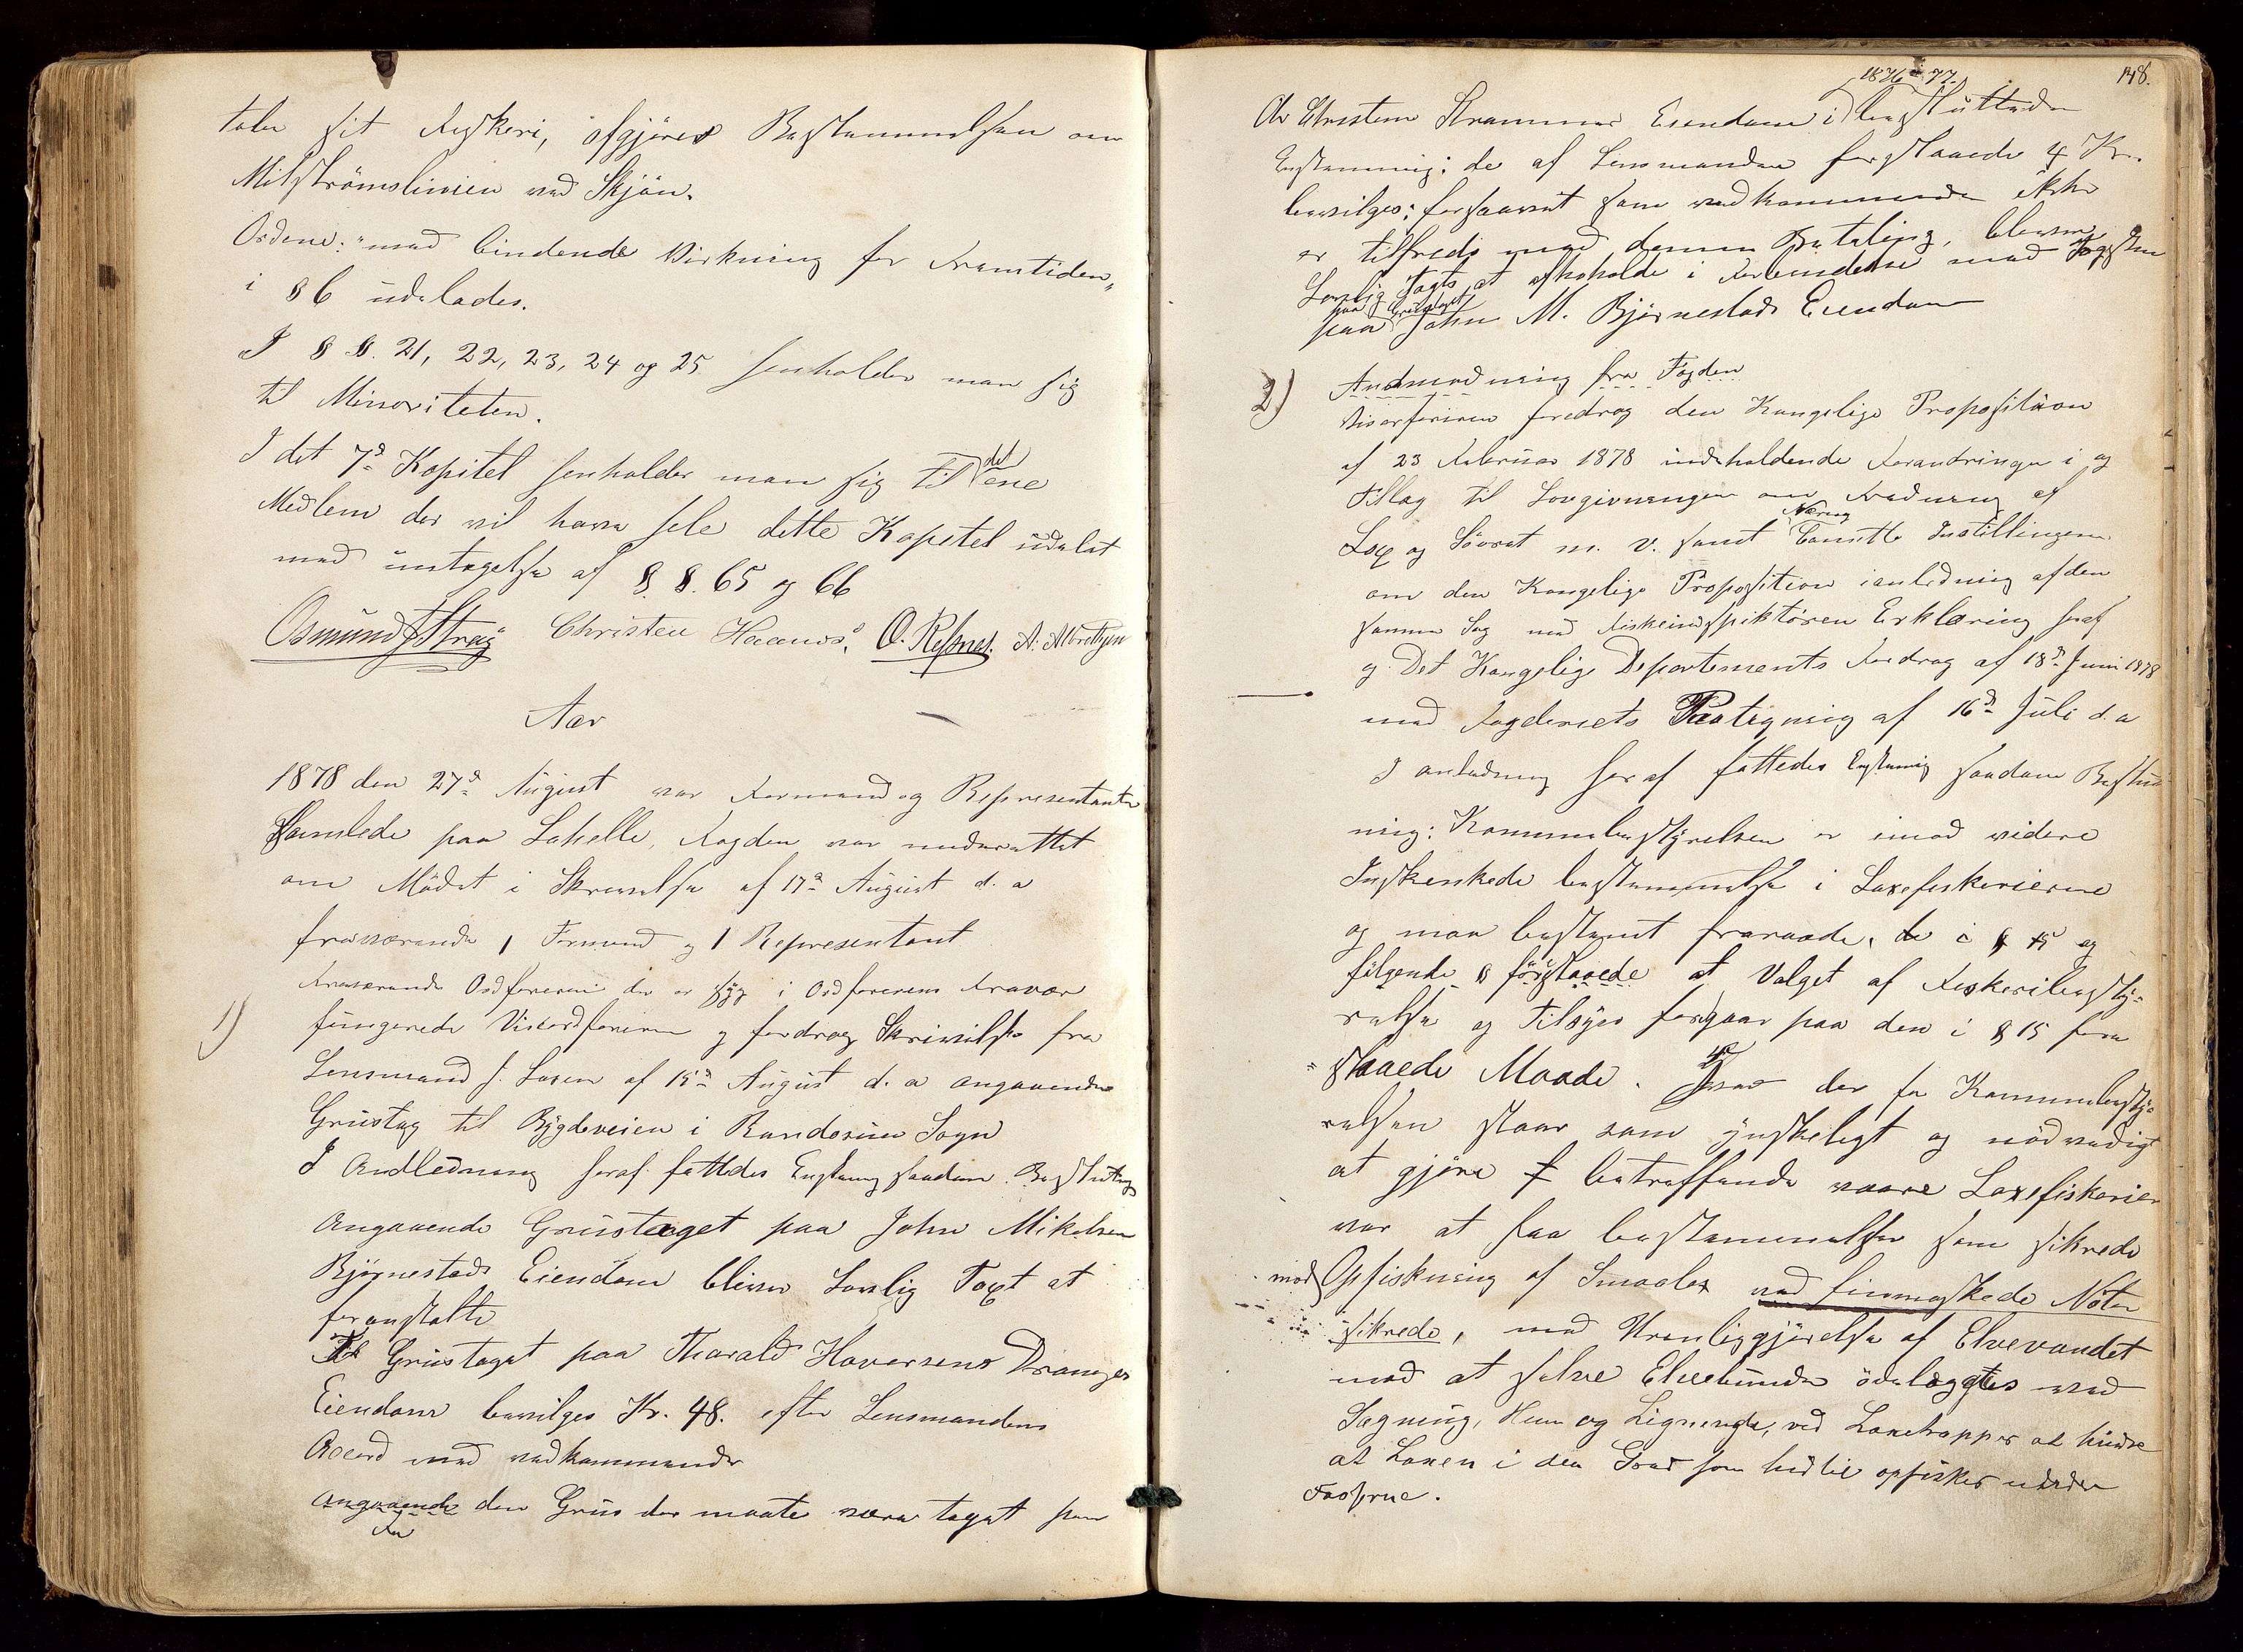 tater sit Fiskeri, afgjøres Bestemmelsen om
Midströmslinien ved Skjön.
Ordene: "med bindende Virkning for Fremtiden"
i § 6 udelades.
I §§. 21, 22, 23, 24 og 25 henholder man sig
til Minoriteten.
I det 7de Kapitel henholder man sig til det ene
Medlem der vil have hele dette Kapitel udeladt
med undtagelse af §§. 65 og 66
Osmund Christen O. A.
Aar
1878 den 27de August var Formænd og Representanter
Samlede paa Lohelle, Fogden var underrettet
om Mödet i Skrivelse af 17de August d. a
fraværende 1 Formand og 1 Representant
Fraværende Ordföreren der er syg i Ordførerens Fravær
1) fungerede Viseordføreren og foredrog Skrivelse fra
Lensmand J. Laxen af 15de August d. a angaaende
Grustag til Bygdeveien i Randøsun Sogn
I Andledning heraf fattedes Enstemig saadan Beslutnig
Angaaende Grustaget paa John Mikalsen
Bjørnestads Eiendom bliver Lovlig Taxt at
foranstalte
For Grustaget paa Tharald Haversens Dranges
Eiendom bevilges Kr. 48. efter Lensmandens
Accord med vedkommende
angaaende den Grus der maate være taget paa
For
1876-77 148.
Ole Christens Strømmes Eiendom i besluttedes
Enstemmig: de af Lensmanden foreslaaede 4 Kr.
bevilges; forsaavidt som vedkommende ikke
er tilfreds med denne Betaling, bliver
Lovlig Taxt at afholde i Forbindelse med Taxten
paa Grustaget
paa John M. Bjørnestads Eiendom
2) Andmodning fra Fogden
Viseordføreren foredrog den Kongelige Proposition
af 23 Februar 1878 indeholdende Forandringer i og
tillæg til Lovgivningen om Fredning af
Lax og Söørret m. v. samt Nærings Comitte Instillingen
om den Kongelige Proposition i anledning af den
samme Sag med Fiskeinspiktören Erklæring heraf
og Det Kongelige Departements Foredrag af 18de Juni 1878
med Fogderiets Paategning af 16de Juli d. a
I anledning heraf fattedes Enstemig saadan Beslut-
ning: Kommunebestyrelsen er imod videre
Indskrenkede bestemmelser i Laxefiskerierne
og man bestemt fraraade, de i § 15 og
følgende § foreslaaede at Valget af Fiskeribesty-
relse og Tilsyn foregaar paa den i § 15 fore
=slaaede Maade. Hvad der for Kommunebesty-
relsen staar som ynskeligt og nödvendigt
at gjøre betreffende vaare Laxefiskerier
var at faa bestemmelser som sikrede
mod Opfiskning af Smaalax ved finmaskede Nöter
sikrede, mod Urenliggjörelse af Elvevandet
mod at selve Elvebunden ödelægges ved
Sagmug, Hun og Lignende, ved Laxetrapper at hindre
at Laxen i den Grad som hidtil opfiskes under
Fosserne.